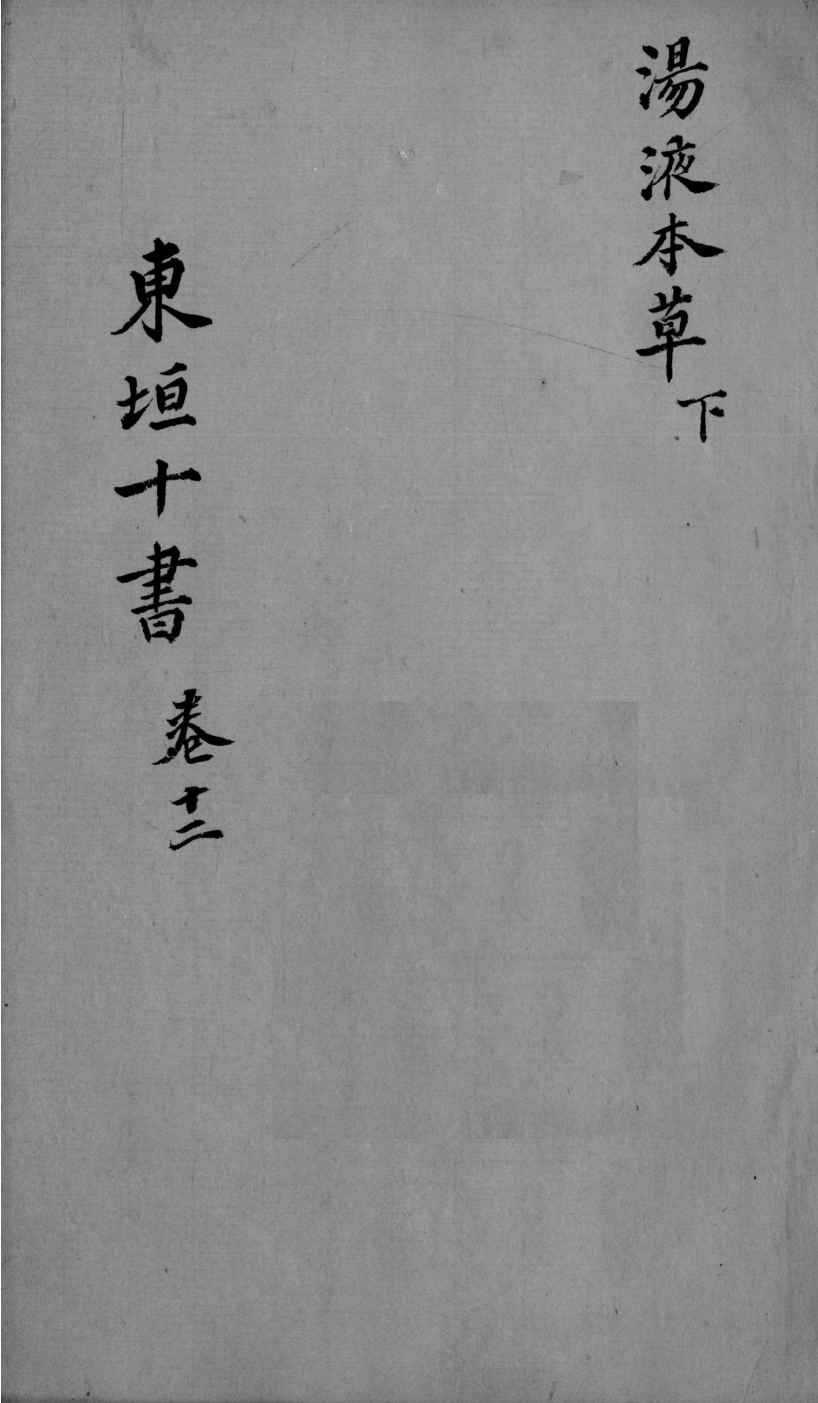 湯液本草下
東垣十書卷十二